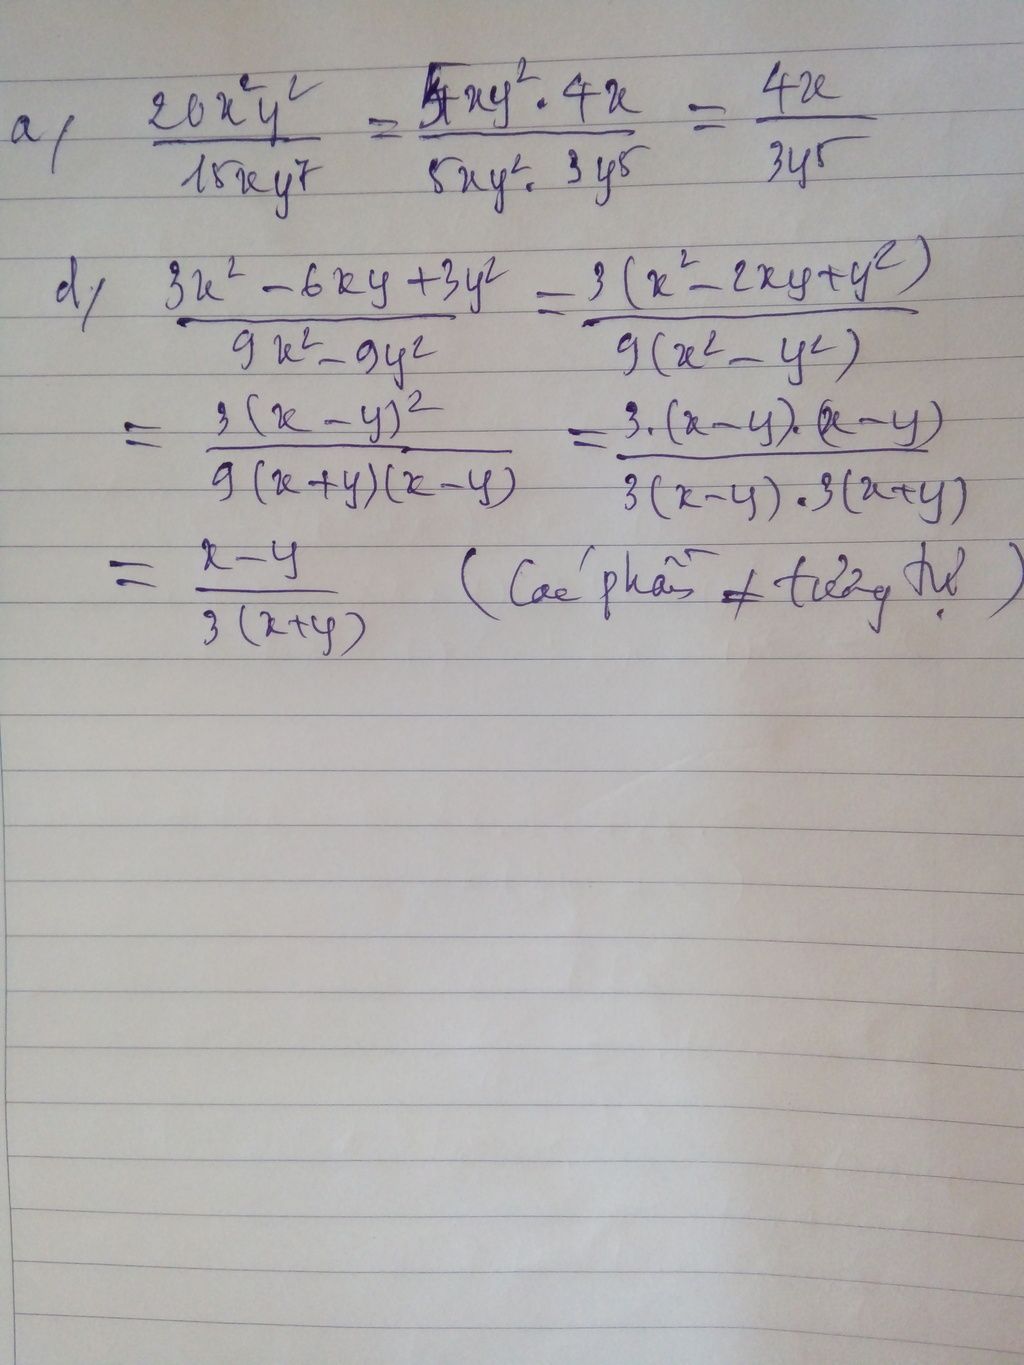 a/ \frac{20x^2y^2}{15xy^7} = \frac{5xy^2 . 4x}{5xy^2 . 3y^5} = \frac{4x}{3y^5}
d/ \frac{3x^2 - 6xy + 3y^2}{9x^2 - 9y^2} = \frac{3(x^2 - 2xy + y^2)}{9(x^2 - y^2)}
= \frac{3(x - y)^2}{9(x+y)(x-y)} = \frac{3.(x-y).(x-y)}{3(x-y).3(x+y)}
= \frac{x-y}{3(x+y)} (Các phần ≠ tương tự)